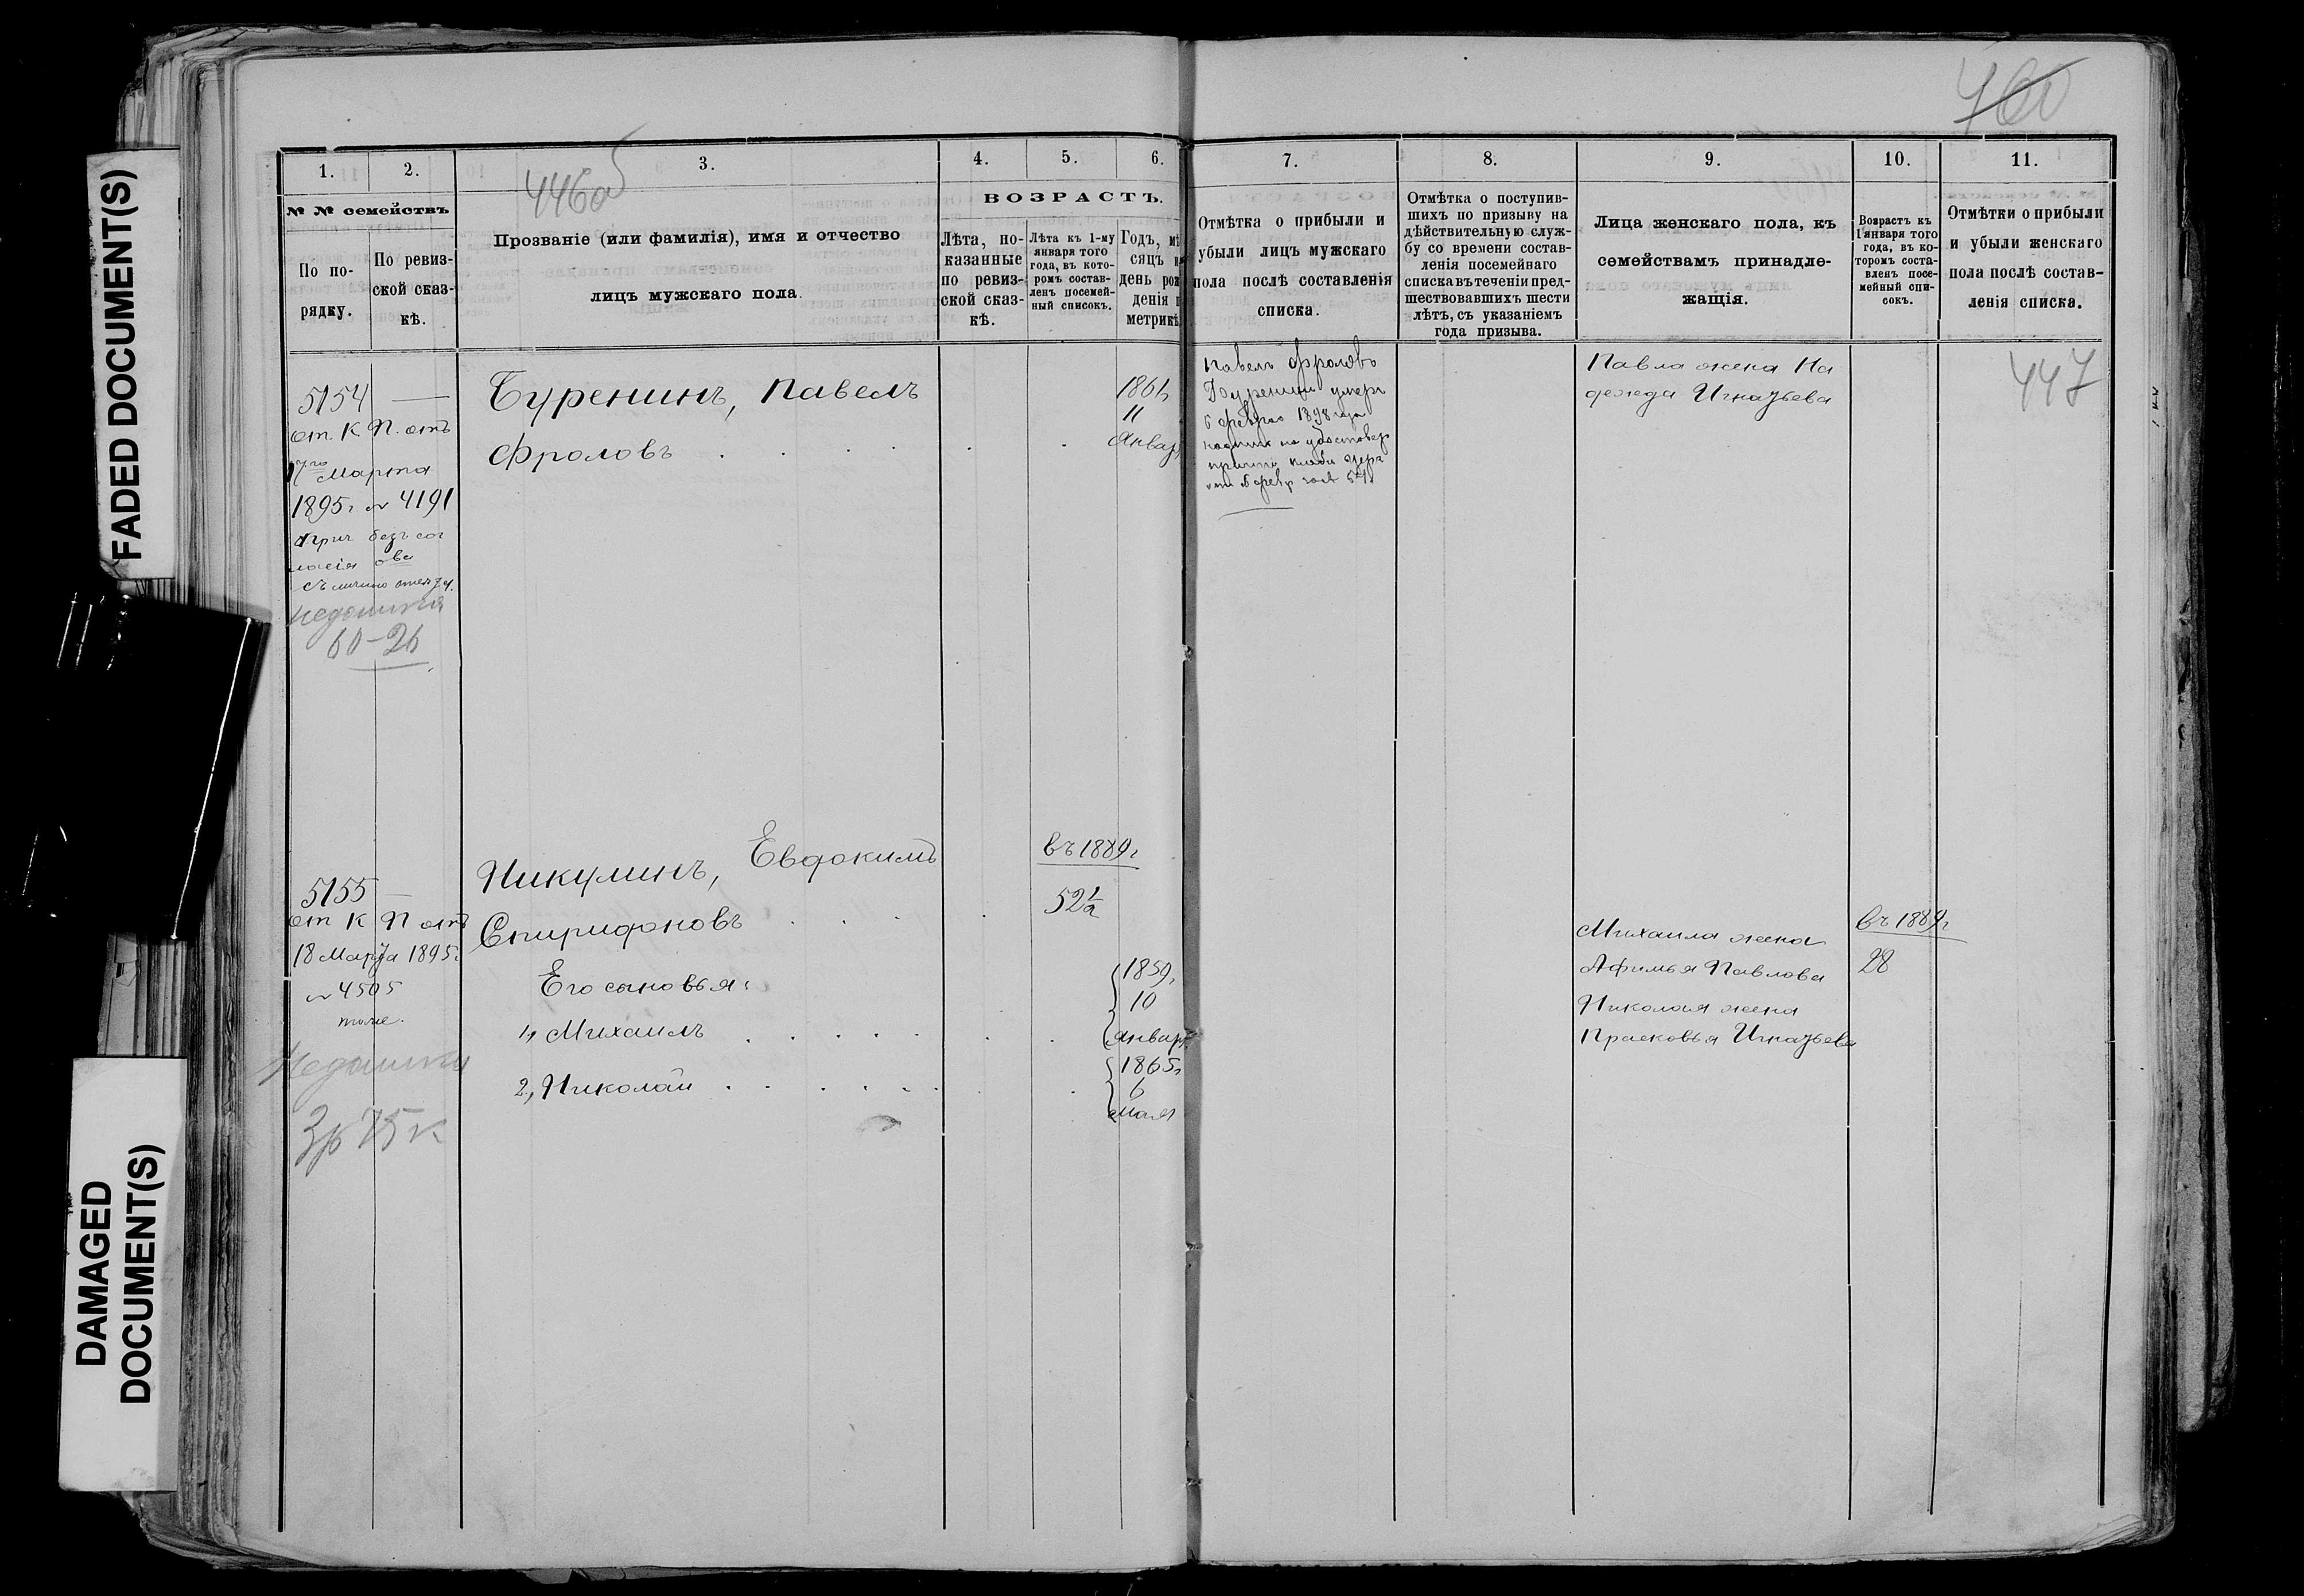 FADED DOCUMENT(S)
DAMAGED
DOCUMENT(S)
460
446об
447
1. 2. 3. 4. 5. 6. 7. 8. 9. 10. 11.
№ № семействъ
По по-
рядку.
По ревиз-
ской сказ-
кѣ.
Прозваніе (или фамилія), имя и отчество
лицъ мужскаго пола.
ВОЗРАСТЪ.
Лѣта, по-
казанные
по ревиз-
ской сказ-
кѣ.
Лѣта къ 1-му
января того
года, въ кото-
ромъ состав-
ленъ посемей-
ный списокъ.
Годъ, мѣ
сяцъ и
день рож
денія п
метрикѣ
Отмѣтка о прибыли и
убыли лицъ мужскаго
пола послѣ составленія
списка.
Отмѣтка о поступив-
шихъ по призыву на
дѣйствительную служ-
бу со времени состав-
ленія посемейнаго
списка въ теченіи пред-
шествовавшихъ шести
лѣтъ, съ указаніемъ
года призыва.
Лица женскаго пола, къ
семействамъ принадле-
жащія.
Возрастъ къ
1 января того
года, въ ко-
торомъ соста-
вленъ посе-
мейный спи-
сокъ.
Отмѣтки о прибыли
и убыли женскаго
пола послѣ состав-
ленія списка.
5154 —
от. К. П. отъ
17го Марта
1895г № 4191
прич безъ сог
ласія ова
недоимка
60-26
Буренинъ, Павелъ
Фроловъ
11
Январ
Павелъ Фроловъ
Буренинъ умеръ
6 Февра 1898 года
Павла жена На
дежда Игнатьева
5155 —
от К П отъ
18 Марта 1895г.
№ 4505
тоже.
Недоимка
3р 75к
Никулинъ, Евдокимъ
Спиридоновъ
Его сыновья:
1, Михаилъ
2, Николай
въ 1889г
52 1/2
1859г
10
Январ
1865г
6
Мая
Михаила жена
Афимья Павлова
Николая жена
Прасковья Игнатьева
въ 1889г
28